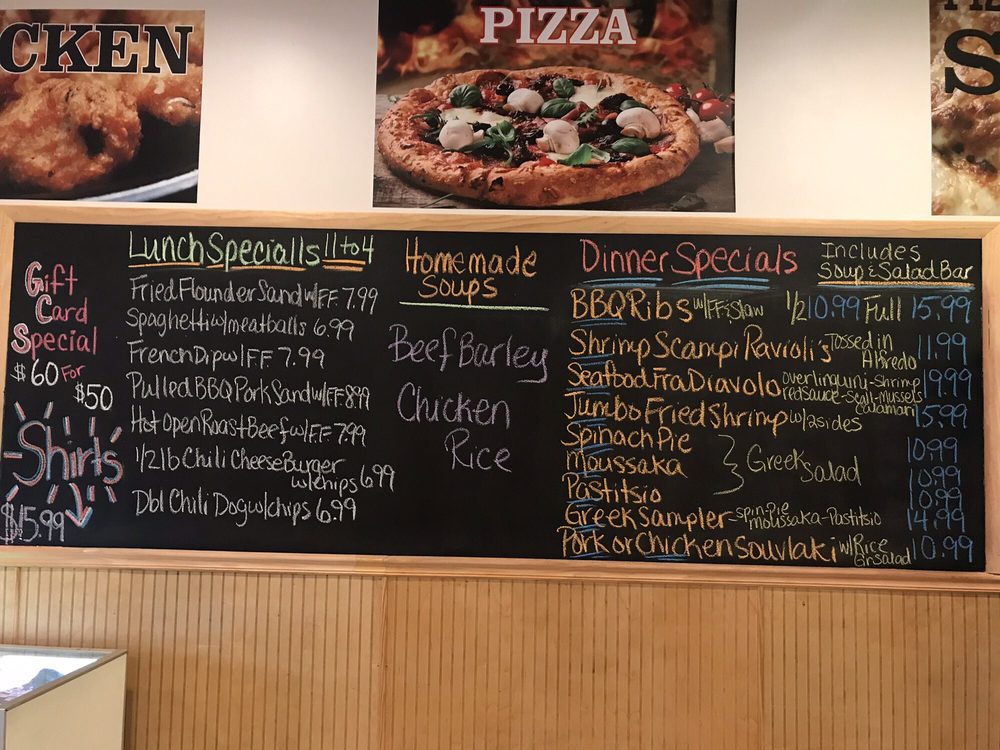 CKEN
PIZZA
S
Gift
Card
Special
$60 For
$50
T-Shirts
$15.99
Lunch Specialls 11 to 4
Fried Flounder Sand w/FF 7.99
Spaghetti w/meatballs 6.99
French Dip w/FF 7.99
Pulled BBQ Pork Sand w/FF 8.99
Hot Open Roast Beef w/FF 7.99
1/2 lb Chili Cheese Burger
w/chips 6.99
Dbl Chili Dog w/chips 6.99
Homemade
Soups
Beef Barley
Chicken
Rice
Dinner Specials
Includes
Soup & Salad Bar
BBQ Ribs w/FF & Slaw 1/2 10.99 Full 15.99
Shrimp Scampi Ravioli's Tossed in Alfredo 11.99
Seafood Fra Diavolo over linguini - shrimp 19.99
red sauce - scall - mussels
calamari
Jumbo Fried Shrimp w/2 sides 15.99
Spinach Pie 10.99
Moussaka } Greek Salad 10.99
Pastitsio 10.99
Greek Sampler - spin. pie 14.99
moussaka - Pastitsio
Pork or Chicken Souvlaki w/Rice 10.99
Grk Salad